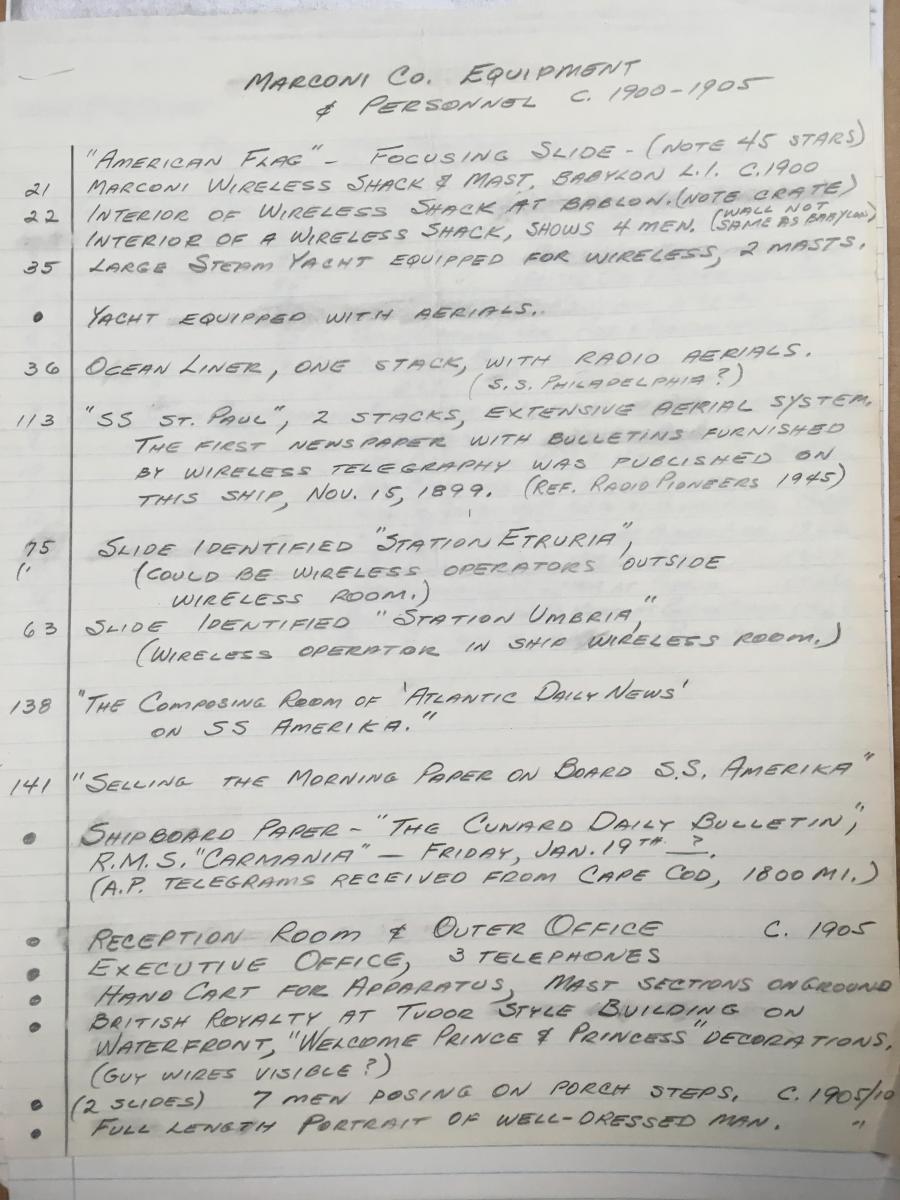 MARCONI CO. EQUIPMENT
& PERSONNEL C. 1900-1905
"AMERICAN FLAG" - FOCUSING SLIDE - (NOTE 45 STARS)
21 MARCONI WIRELESS SHACK & MAST, BABYLON L.I. C.1900
22 INTERIOR OF WIRELESS SHACK AT BABLON. (NOTE CRATE)
INTERIOR OF A WIRELESS SHACK, SHOWS 4 MEN. (WALL NOT SAME AS BABYLON)
35 LARGE STEAM YACHT EQUIPPED FOR WIRELESS, 2 MASTS.
• YACHT EQUIPPED WITH AERIALS.
36 OCEAN LINER, ONE STACK, WITH RADIO AERIALS.
(S.S. PHILADELPHIA?)
113 "SS ST. PAUL", 2 STACKS, EXTENSIVE AERIAL SYSTEM.
THE FIRST NEWSPAPER WITH BULLETINS FURNISHED
BY WIRELESS TELEGRAPHY WAS PUBLISHED ON
THIS SHIP, NOV. 15, 1899. (REF. RADIO PIONEERS 1945)
75 SLIDE IDENTIFIED "STATION ETRURIA",
(COULD BE WIRELESS OPERATORS OUTSIDE
WIRELESS ROOM.)
63 SLIDE IDENTIFIED "STATION UMBRIA,"
(WIRELESS OPERATOR IN SHIP WIRELESS ROOM.)
138 "THE COMPOSING ROOM OF 'ATLANTIC DAILY NEWS'
ON SS AMERIKA."
141 "SELLING THE MORNING PAPER ON BOARD S.S. AMERIKA"
• SHIPBOARD PAPER - "THE CUNARD DAILY BULLETIN",
R.M.S. "CARMANIA" - FRIDAY, JAN. 19TH ?.
(A.P. TELEGRAMS RECEIVED FROM CAPE COD, 1800 MI.)
• RECEPTION ROOM & OUTER OFFICE C. 1905
• EXECUTIVE OFFICE, 3 TELEPHONES
• HAND CART FOR APPARATUS, MAST SECTIONS ON GROUND
• BRITISH ROYALTY AT TUDOR STYLE BUILDING ON
WATERFRONT, "WELCOME PRINCE & PRINCESS" DECORATIONS.
(GUY WIRES VISIBLE?)
• (2 SLIDES) 7 MEN POSING ON PORCH STEPS. C. 1905/10
• FULL LENGTH PORTRAIT OF WELL-DRESSED MAN. "